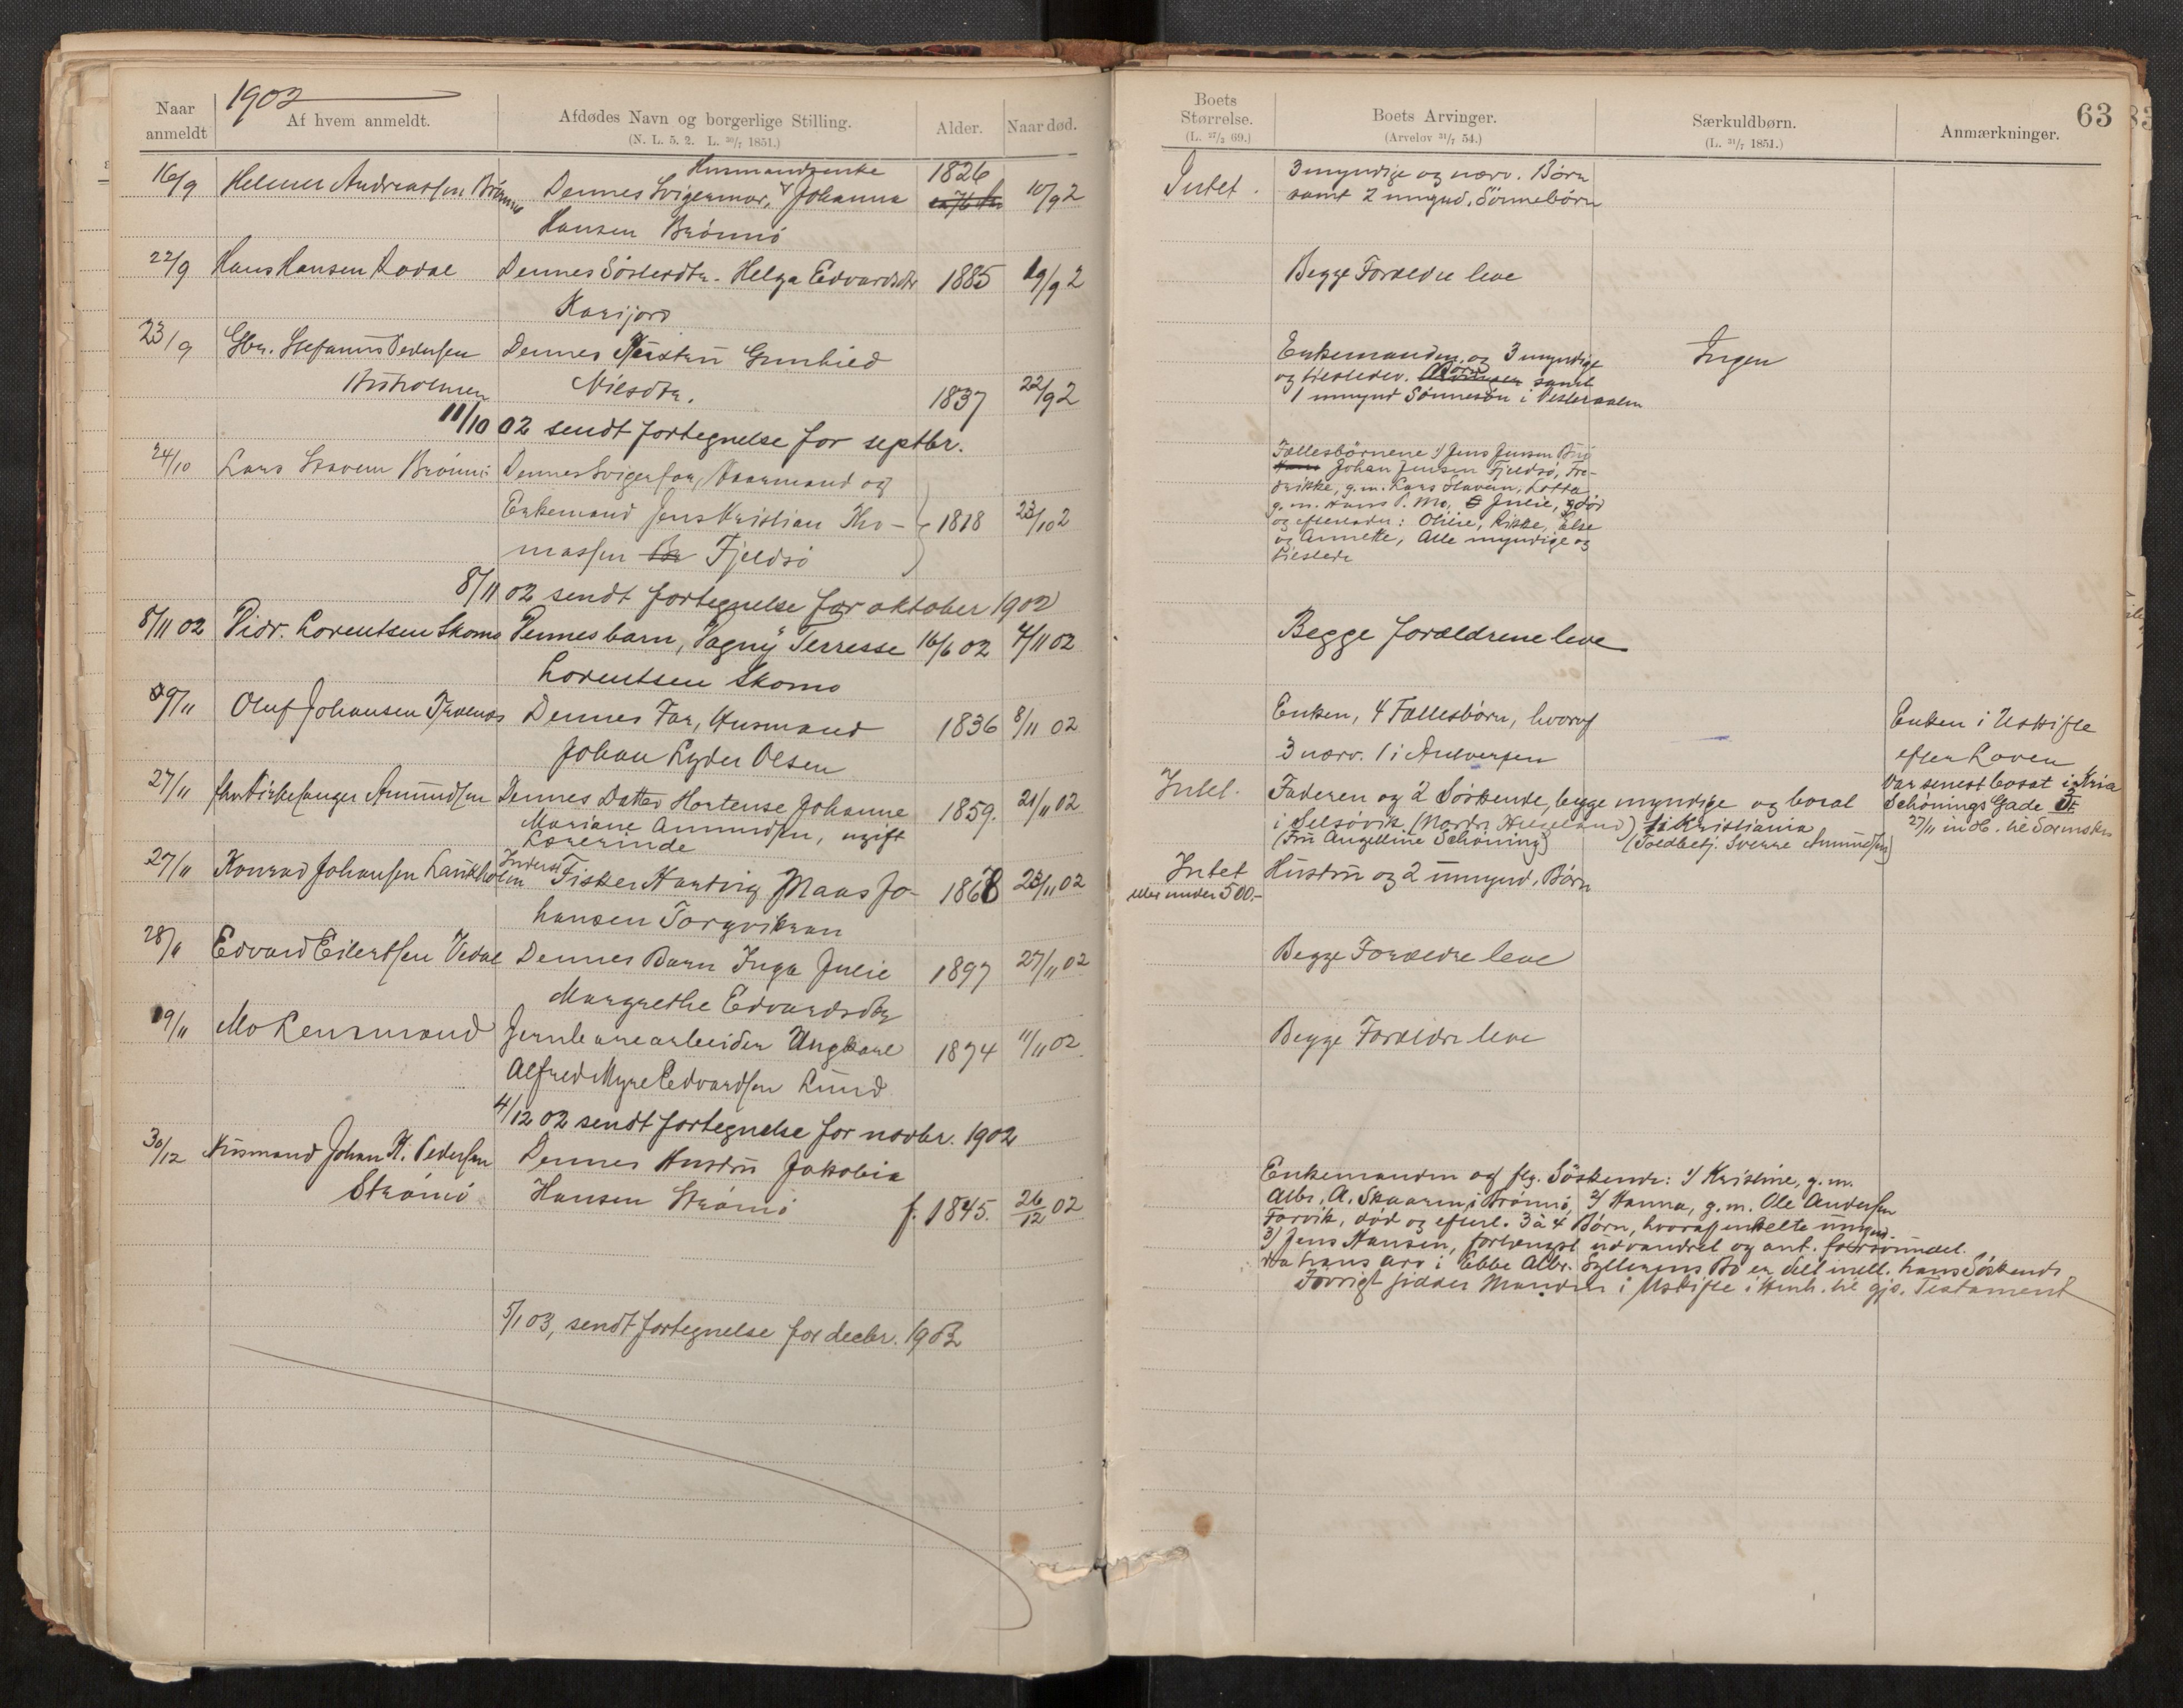 1902
Naar anmeldt
Af hvem anmeldt.
Afdødes Navn og borgerlige Stilling.
(N. L. 5. 2. L. 30/7 1851.)
Alder.
Naar død.
16/9 Helmer Andreassen Brønnø Dennes Svigermor, Husmandsenke Johanna 1826 10/9 2
Hansen Brønnø
22/9 Hans Hansen Dodal Dennes Søsterdtr. Helga Edvardsdtr 1885 19/9 2
Karijord
23/9 Gbr. Stefanus Pedersen Dennes Hustru Gunhild
Nilsdtr. 1837 22/9 2
11/10 02 sendt fortegnelse for septbr.
24/10 Lars Skavem Brønnø Dennes Svigerfar, Kaarmand og
Enkemand Jens Kristian Tho- 1818 23/10 2
massen Br Fjeldsø
8/11 02 sendt fortegnelse for oktober 1902
8/11 02 Pidr. Lorentsen Skomo Dennes barn, Dagny Terresse 16/6 02 4/11 02
Lorentsen Skomo
9/11 Oluf Johansen Dennes Far, Husmand 1836 8/11 02
Johan Lyder Olsen
27/11 fhv Kirkesanger Amundsen Dennes Datter Hortense Johanne 1859. 21/11 02
Mariane Amundsen, ugift
Lærerinde
27/11 Konrad Johansen Lankholm Inderst Fisker Hartvig Maas Jo- 1868 23/11 02
hansen Torgvikran
28/11 Edvard Eilertsen Vedal Dennes Barn Inga Julie 1897 27/11 02
Margrethe Edvardsdtr
19/11 Mo Lensmand Jernbanearbeider Ungkarl 1874 11/11 02
Alfred Myre Edvardsen Lund
4/12 02 sendt fortegnelse for novbr. 1902
30/12 Husmand Johan H. Pedersen Dennes Hustru Jakobia
Strømø Hansen Strømø f. 1845. 26/12 02
5/1 03, sendt fortegnelse for decbr. 1902
63
Boets Størrelse.
(L. 27/3 69.)
Boets Arvinger.
(Arvelov 31/7 54.)
Særkuldbørn.
(L. 31/7 1851.)
Anmærkninger.
Intet. 3 myndige og nærv. Børn
samt 2 umynd. Sønnebørn
Begge Forældre leve
Enkemanden og 3 myndige Ingen
og tilstedev. Børn samt
1 umynd Sønnesøn i Vesteraalen
Fællesbørnene 1) Jens Jensen
Johan Jensen Fjeldsø, Fre-
drikke, g.m. Lars Skavem, Lotta
g.m. Hans P. Mo, Julie, død
og efterlader: Olise, Rikke, Else
og Annette, Alle myndige og
tilstede
Begge forældrene leve
Enken, 4 Fællesbørn, hvoraf Enken i Uskifte
3 nærv. 1 i Antverpen efter Loven
Intet. Faderen og 2 Søskende, begge myndige og bosat Var senest bosat i Kria
i Selsøvik (Nordre Helgeland) i Kristiania Schønings Gade
(Fru Angelline Schøning) (Toldbetj. Sverre Amundsen) 27/11 indb. til
Intet Hustru og 2 umynd. Børn
eller under 500.-
Begge Forældre leve
Begge Forældre leve
Enkemanden og flg. Søskende: 1) Kristine, g.m.
Albr. A. Skaaren, Brønnø, 2) Hanna, g.m. Ole Andersen
Torvik, død og efterl. 3 à 4 Børn, hvoraf enkelte umynd.
3) Jens Hansen, forlængst udvandret og ant. forsvundet.
da hans arv i Ebbe Albr. Sylterens Bo er delt mell. hans Søskende
Iøvrigt sidder Manden i Uskifte i Henh. til gjs. Testament